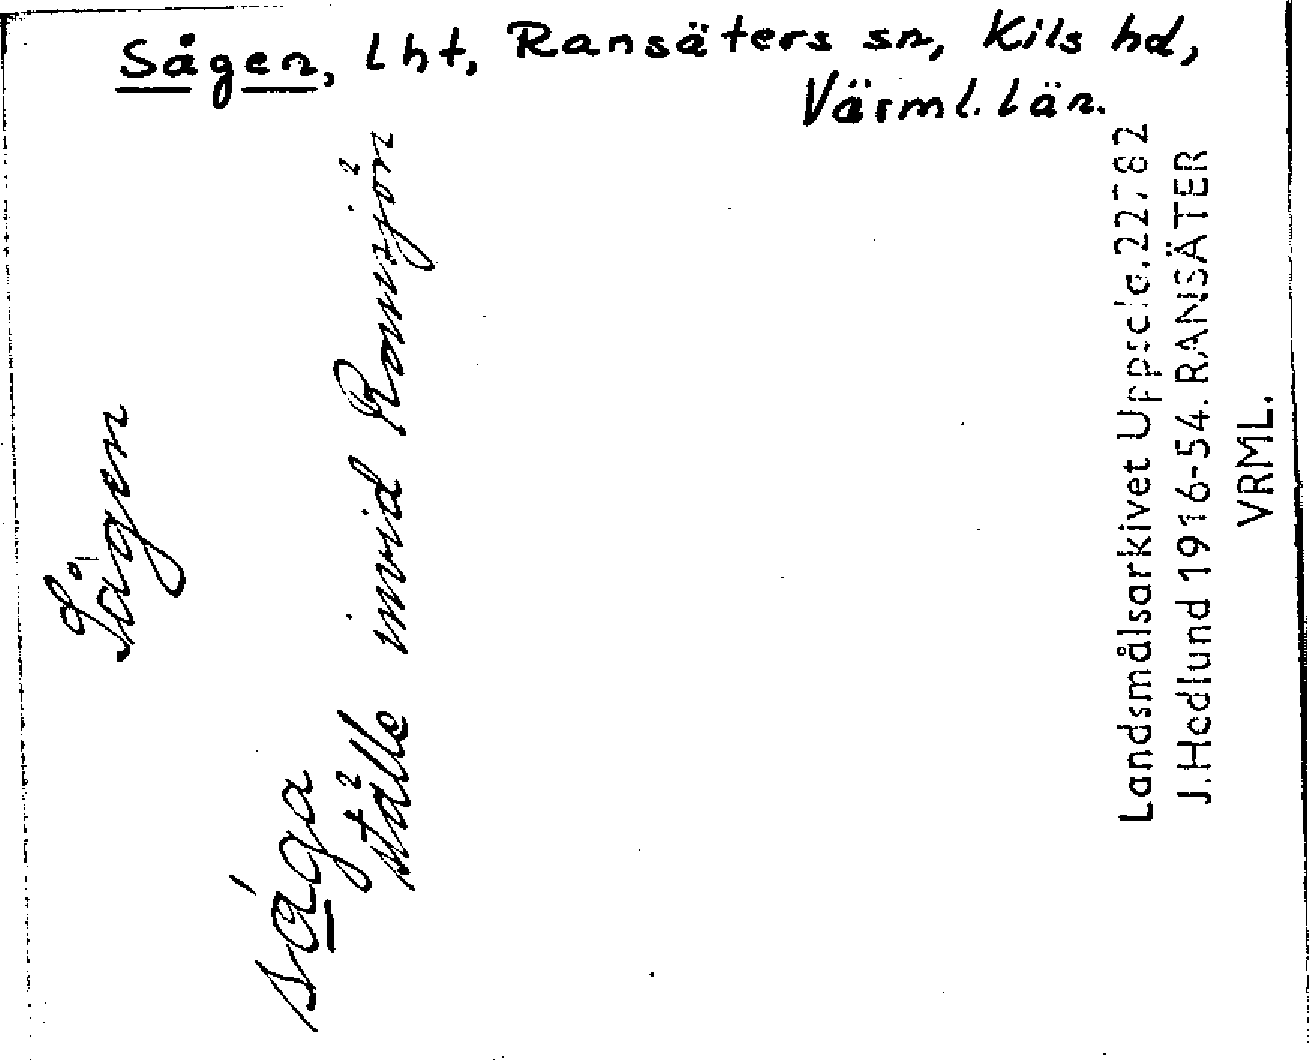 Sågen, Lht, Ransäters sn, Kils hd,
Värml. län.
Sågen
såga
ställe invid Ransjön
Landsmålsarkivet Uppsala 22782
J. Hedlund 1916-54. RANSÄTER
VRML.